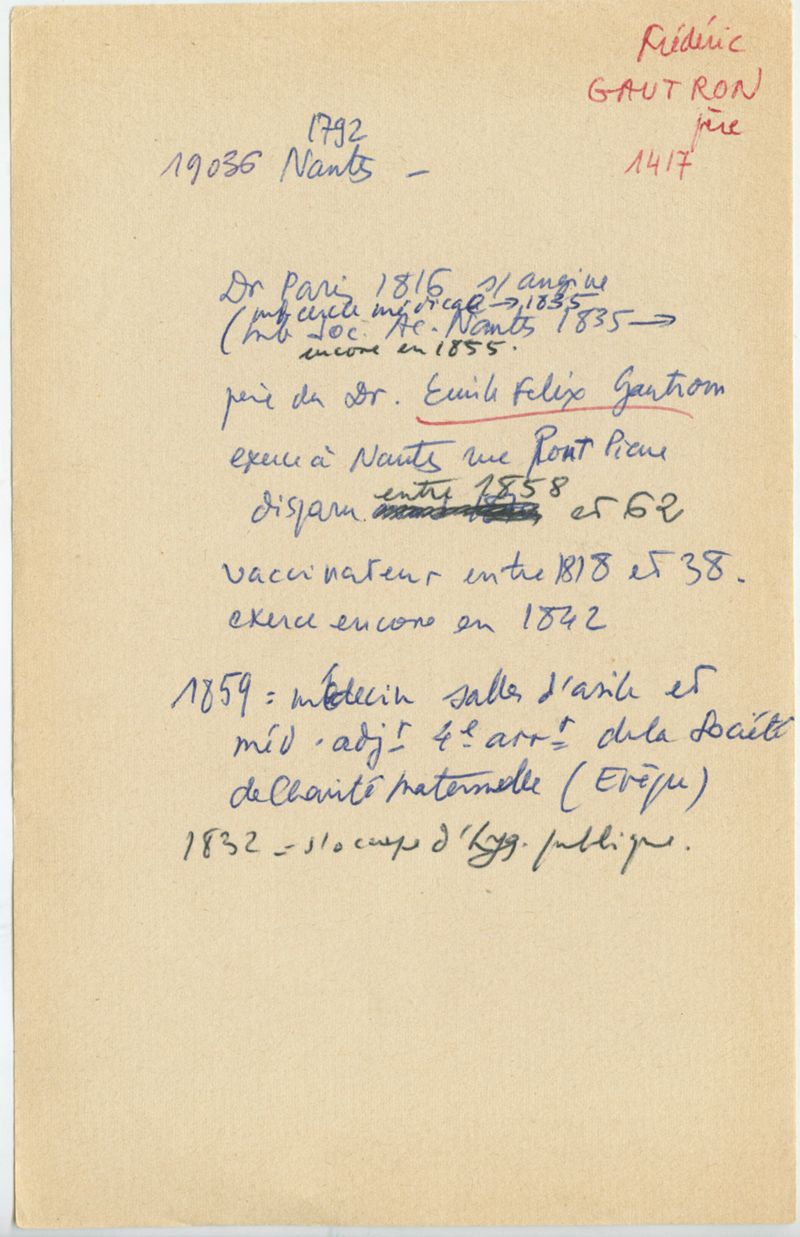 Frédéric
GAUTRON
père
1417
1792
19036 Nantes –
Dr Paris 1816 s/ angine
mb cercle médical → 1835
(mb Soc. Ac. Nantes 1835 →
encore en 1855.
père du Dr. Emile Felix Gautron
exerce à Nantes rue Pont Pierre
disparu entre 1858 et 62
vaccinateur entre 1818 et 38.
exerce encore en 1842
1859 = médecin salles d'asile et
méd. adjt 4e arrt de la Société
de Charité Maternelle (Evêque)
1832 = s'occupe d'hyg. publique.